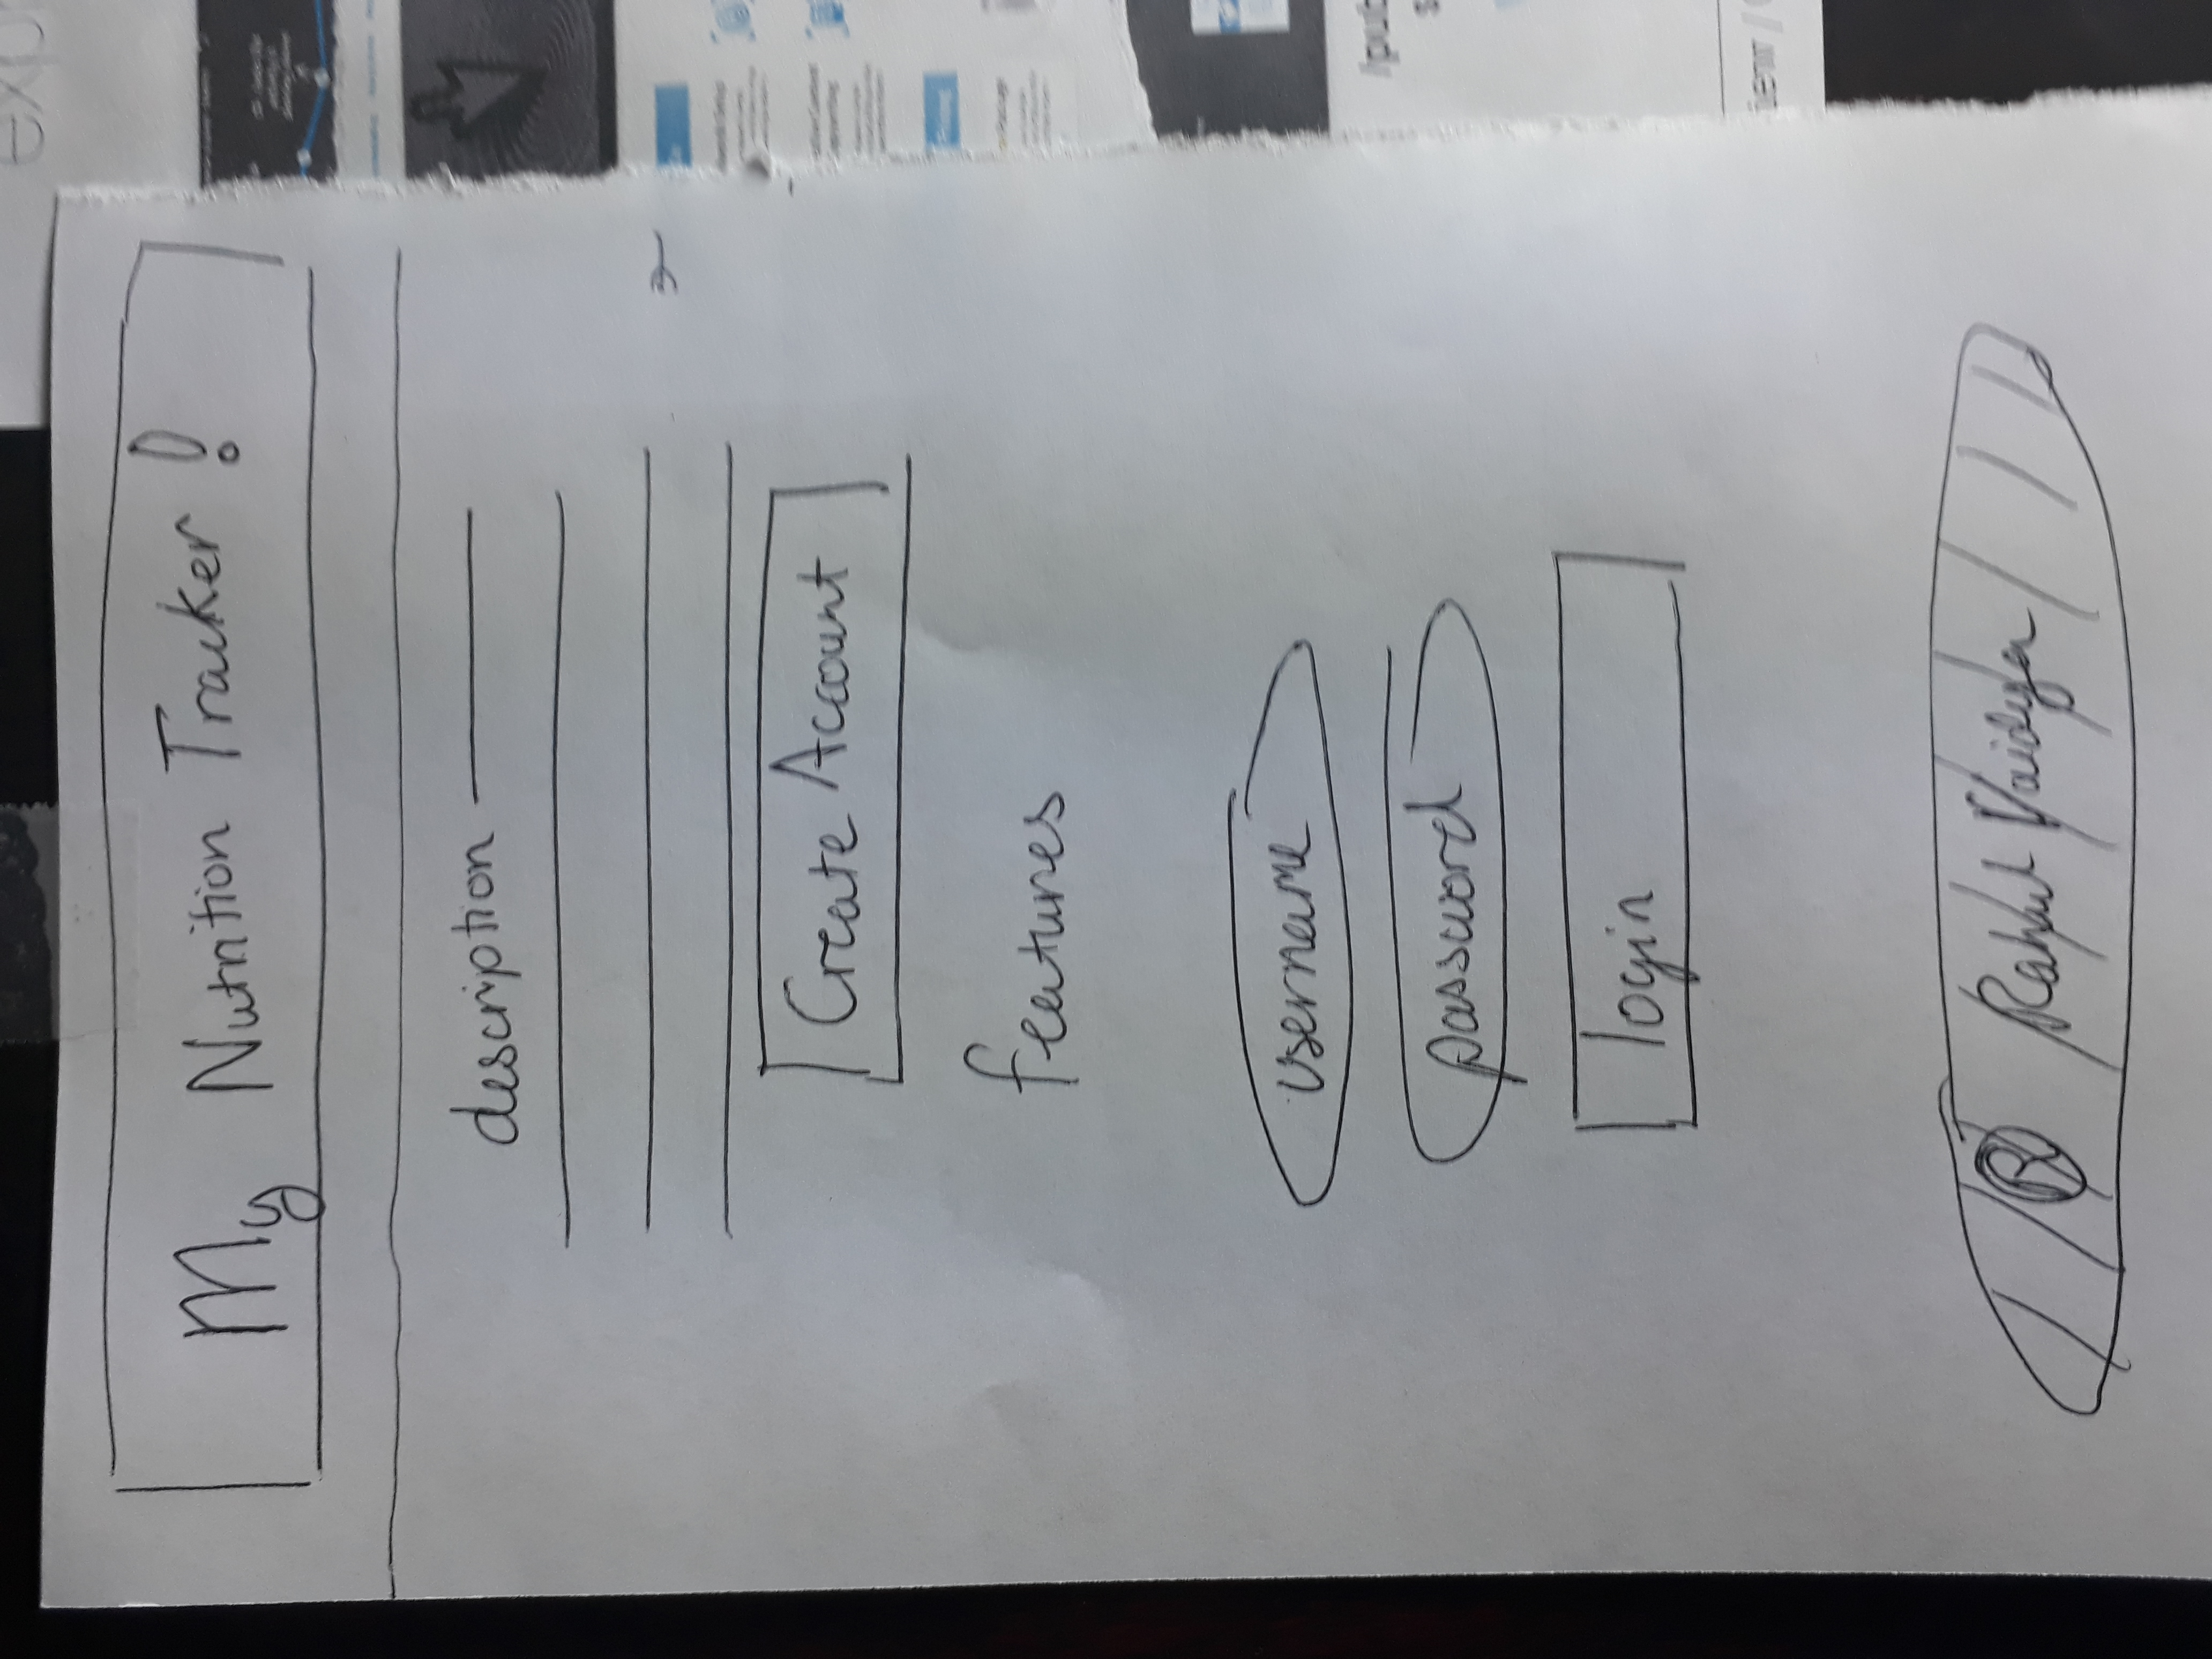 exp
My Nutrition Tracker!
description
Create Account
features
username
password
login
® Rahul Vaidya
/pub